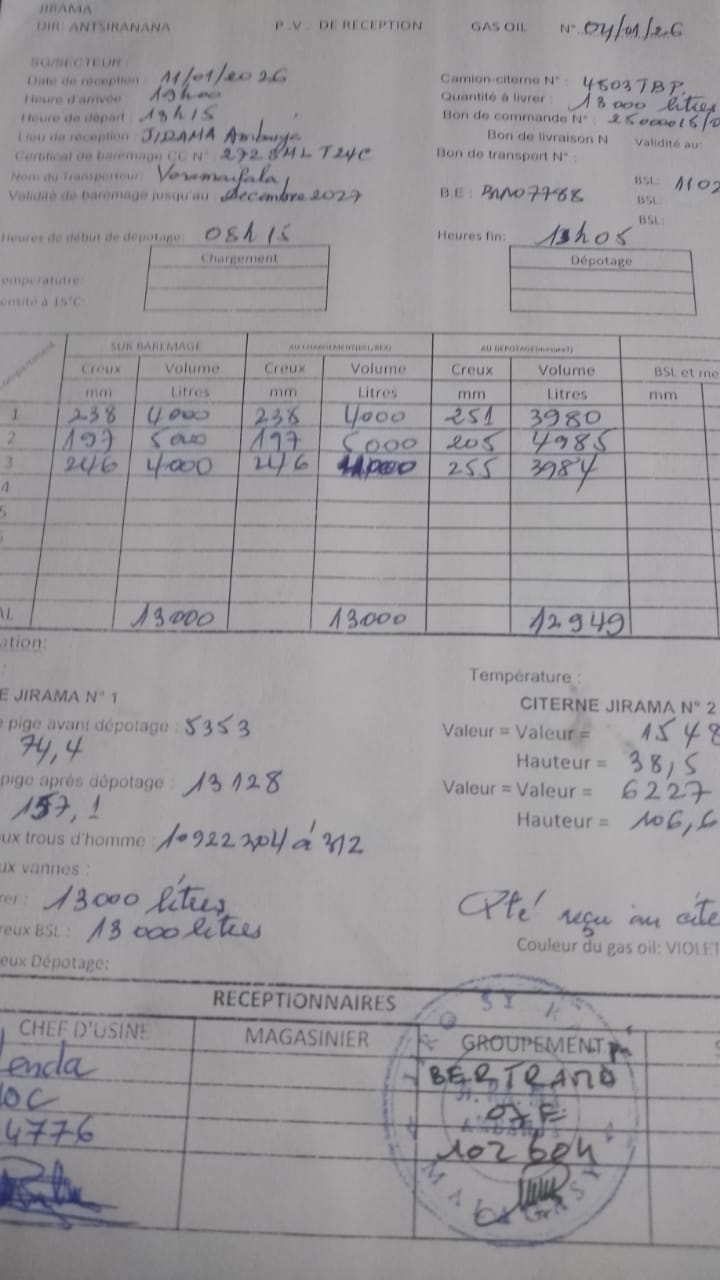 JIRAMA
DIR: ANTSIRANANA P.V. DE RECEPTION GAS OIL N° 04/01/26
SG/SECTEUR:
Date de réception : 11/01/2026 Camion-citerne N° : 4803TBP
Heure d'arrivée: Quantité à livrer : 13 000 litres
Heure de départ : Bon de commande N° :
Lieu de réception : JIRAMA Bon de livraison N Validité au:
Certificat de baremage CC N° : Bon de transport N° :
Nom du Transporteur: BSL:
Validité de baremage jusqu'au : Décembre 2027 B.E : BSL:
BSL:
Heures de début de dépotage: 08h15 Heures fin: 13h05
Chargement Dépotage
emperature:
ensité à 15°C:
SUR BAREMAGE AU CHARGEMENT(BSL/BEX) AU DEPOTAGE
Creux Volume Creux Volume Creux Volume BSL et me
mm Litres mm Litres mm Litres mm
1 238 4000 238 4000 251 3980
2 197 5000 197 5000 205 4985
3 246 4000 246 255 3984
4
5
AL 13000 13000 12949
ation:
Température :
E JIRAMA N° 1 CITERNE JIRAMA N° 2
pige avant dépotage : 5353 Valeur = Valeur = 1548
74,4 Hauteur = 38,5
pige après dépotage : 13128 Valeur = Valeur = 6227
157,1 Hauteur = 106,6
ux trous d'homme :
ux vannes :
rer : 13000 litres Qté reçu au cite
reux BSL : 13 000 litres Couleur du gas oil: VIOLET
eux Dépotage:
RECEPTIONNAIRES
CHEF D'USINE MAGASINIER GROUPEMENT
enda BERTRAND
4776 102604